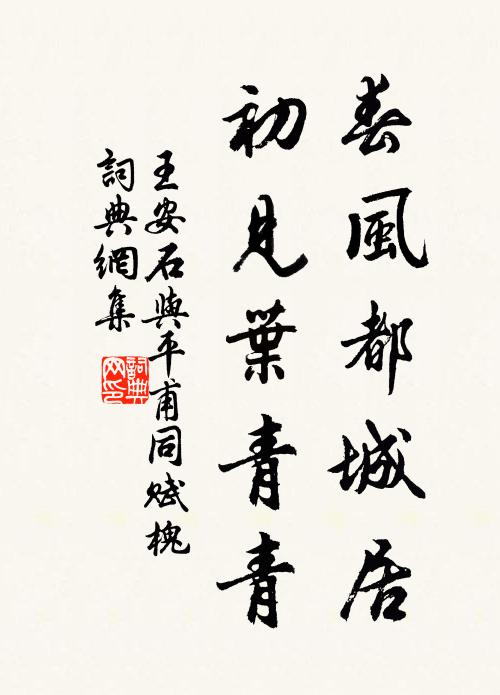 春風都城居
初見葉青青
王安石與平甫同賦槐
詞典網集
詞典
网印